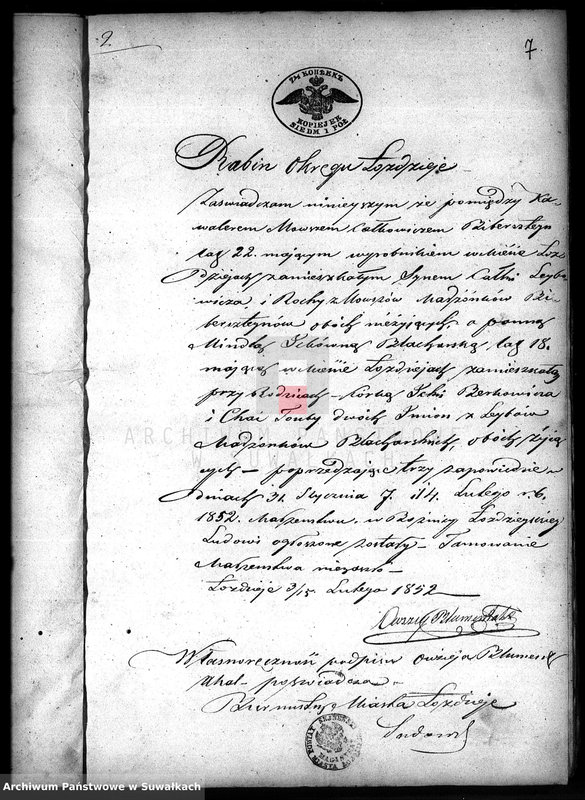 2.
7
7½ KOPѢEKЪ
KOPIEJEK
SIEDM I PÓŁ
Rabin Okręgu Łozdzieje
Zaświadczam ninieyszym że pomiędzy Ka-
walerem Mowszem Całkowiczem Biberszteyn
lat 22 mającym wyrobnikiem w Mieście Łoz-
dziejach zamieszkałym, Synem Całki Leybo-
wicza i Rochy z Mowszów Małżonków Bi-
bersztejnów obóch nieżyjących, a panną
Mindlą Ickówną Blacharską, lat 18
mającą w Mieście Łozdziejach zamieszkałą
przy Rodzicach – córką Icki Berkowicza
i Chai Touby dwóch Imion z Leybów
Małżonków Blacharskich, obóch żyją-
cych – poprzedzające trzy zapowiedzie w
dniach 31 Stycznia 7 i 14 Lutego r. b.
1852. Małżeństwa, w Bożnicy Łozdziejskiej
Ludowi ogłoszone zostały – Tamowanie
Małżeństwa nieszło –
Łozdzieje 3/15 Lutego 1852
Owzej Blumenthal
Własnoręczność podpisu Owzieja Blumen-
thal poświadcza
Burmistrz Miasta Łozdzieje
ARCHIWUM PAŃSTWOWE
W SUWAŁKACH
Archiwum Państwowe w Suwałkach